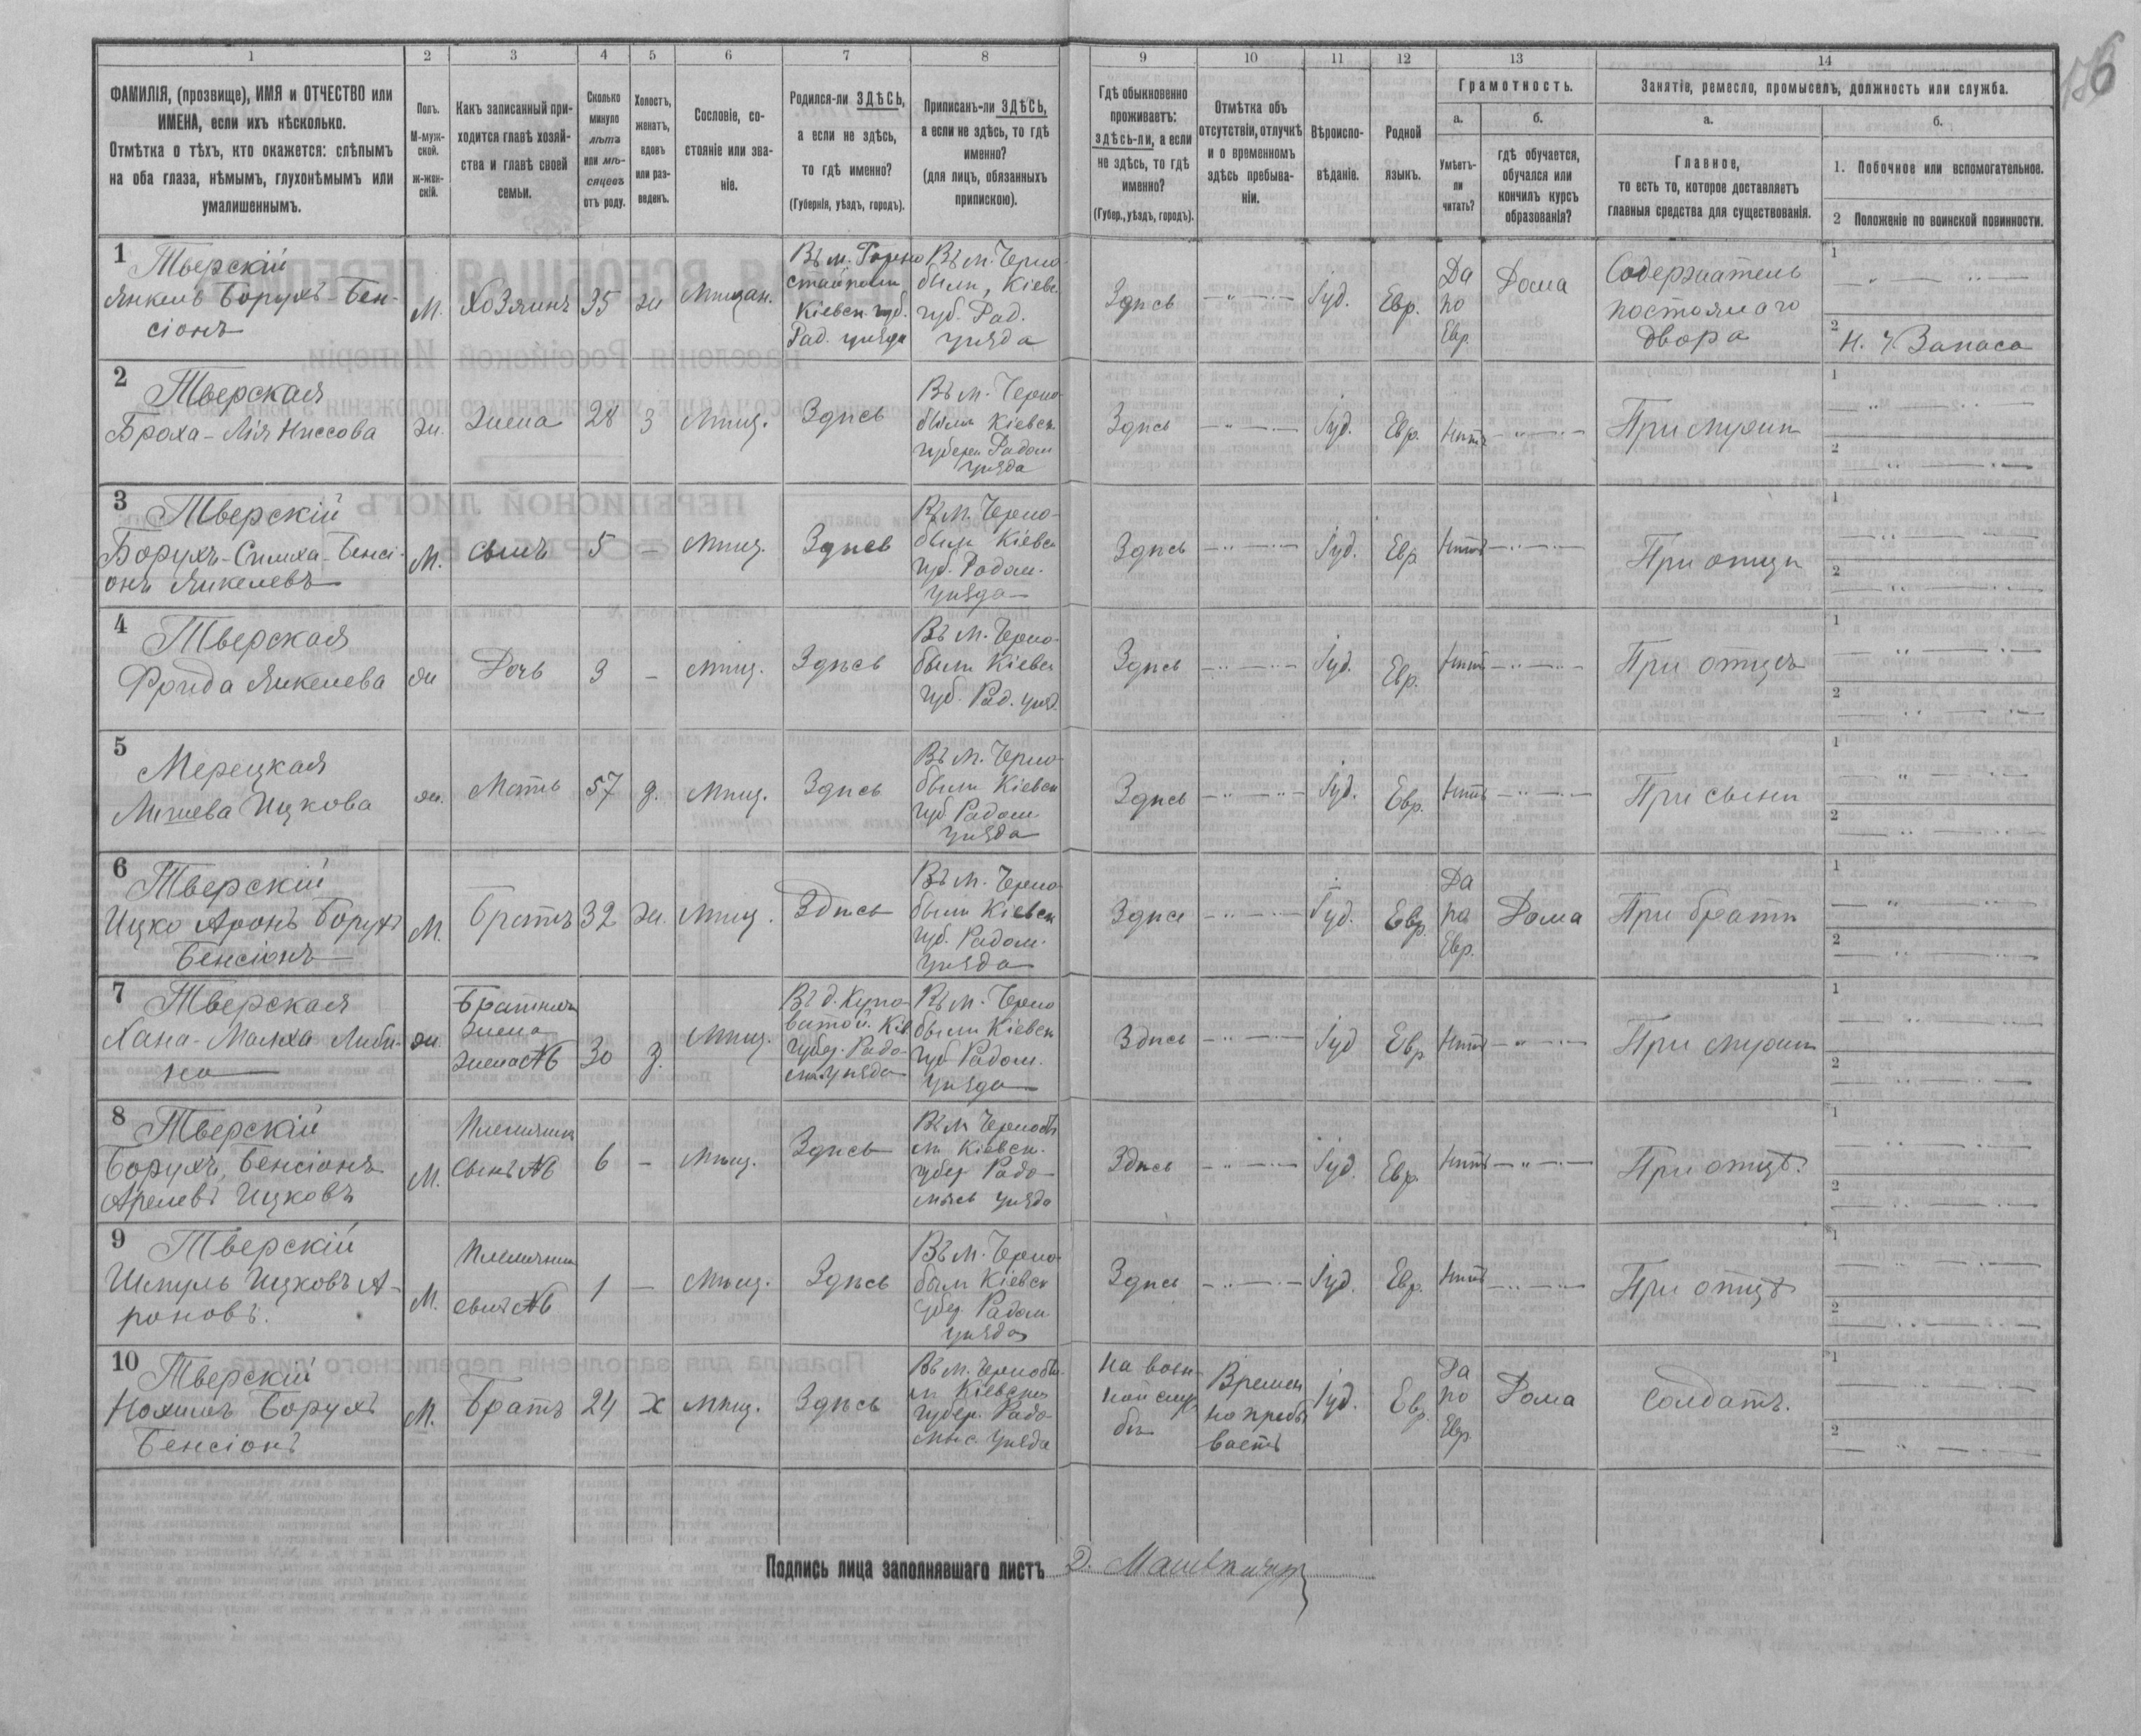 156
1 2 3 4 5 6 7 8 9 10 11 12 13 14
ФАМИЛІЯ, (прозвище), ИМЯ и ОТЧЕСТВО или
ИМЕНА, если ихъ нѣсколько.
Отмѣтка о тѣхъ, кто окажется: слѣпымъ
на оба глаза, нѣмымъ, глухонѣмымъ или
умалишеннымъ.
Полъ.
М-муж-
ской.
ж-жен-
скій.
Какъ записанный при-
ходится главѣ хозяй-
ства и главѣ своей
семьи.
Сколько
минуло
лѣтъ
или мѣ-
сяцевъ
отъ роду.
Холостъ,
женатъ,
вдовъ
или раз-
веденъ.
Сословіе, со-
стояніе или зва-
ніе.
Родился-ли ЗДѢСЬ,
а если не здѣсь,
то гдѣ именно?
(Губернія, уѣздъ, городъ).
Приписанъ-ли ЗДѢСЬ,
а если не здѣсь, то гдѣ
именно?
(для лицъ, обязанныхъ
припискою).
Гдѣ обыкновенно
проживаетъ:
здѣсь-ли, а если
не здѣсь, то гдѣ
именно?
(Губер., уѣздъ, городъ).
Отмѣтка объ
отсутствіи, отлучкѣ
и о временномъ
здѣсь пребыва-
ніи.
Вѣроиспо-
вѣданіе.
Родной
языкъ.
Грамотность.
а.
Умѣетъ-
ли
читать?
б.
гдѣ обучается,
обучался или
кончилъ курсъ
образованія?
Занятіе, ремесло, промыселъ, должность или служба.
а.
Главное,
то есть то, которое доставляетъ
главныя средства для существованія.
б.
1. Побочное или вспомогательное.
2 Положеніе по воинской повинности.
1 Тверскій
Янкель Борухъ-Бен-
сіонъ
М. Хозяинъ 35 ж Мѣщан.
Въ м. Горно
стайполи
Кіевск. губ.
Рад. уѣзда
Въ м. Черно-
были, Кіевс.
губ. Рад.
уѣзда
Здѣсь Іуд. Евр.
Да
по
Евр.
Дома
Содержатель
постоялаго
двора
1
2 Н. Ч. Запаса
2 Тверская
Броха-Лія Ниссова
ж. жена 28 з Мѣщ. Здѣсь
Въ м. Черно-
были Кіевск.
губерн. Радом
уѣзда
Здѣсь Іуд. Евр. Нѣтъ При мужѣ
1
2
3 Тверскій
Борухъ-Симха-Бенсі-
онъ Янкелевъ
М. сынъ 5 – Мѣщ. Здѣсь
Въ м. Черно-
были Кіевск
губ. Радом.
уѣзда
Здѣсь Іуд. Евр Нѣтъ При отцѣ
1
2
4 Тверская
Фрида Янкелева
ж Дочь 3 – Мѣщ. Здѣсь
Въ м. Черно-
были Кіевск
губ. Рад. уѣзд.
Здѣсь Іуд. Евр. Нѣтъ При отцѣ
1
2
5 Мерецкая
Ицкова
ж. Мать 57 Мѣщ. Здѣсь
Въ м. Черно-
были Кіевск
губ Радом
уѣзда
Здѣсь Іуд. Евр. Нѣтъ При сынѣ
1
2
6 Тверскій
Ицко Аронъ Борухъ
Бенсіонъ
М. Братъ 32 ж. Мѣщ. Здѣсь
Въ м. Черно-
были Кіевск
губ. Радом.
уѣзда
Здѣсь Іуд. Евр.
Да
по
Евр.
Дома При братѣ
1
2
7 Тверская
Хана-Малка Либи-
на
ж.
Братняя
жена
жена №6
30 з. Мѣщ.
Въ д. Купо-
ватой Кіев
губер. Радо-
мы. уѣзда
Въ м. Черно
были Кіевск
губ Радом.
уѣзда
Здѣсь Іуд Евр Нѣтъ При мужѣ
1
2
8 Тверскій
Борухъ, Бенсіонъ
Арелевъ Ицковъ
М.
Племянник
сынъ №6
6 – Мѣщ. Здѣсь
Въ м Чернобы
ли Кіевск.
губер Радо-
мысь уѣзда
Здѣсь Іуд. Евр. Нѣтъ При отцѣ.
1
2
9 Тверскій
Шмуль Ицковъ А-
роновъ.
М.
Племянник
сынъ №6
1 – Мѣщ. Здѣсь
Въ м. Черно-
были Кіевск
губер. Радом
уѣзда
Здѣсь Іуд. Евр. Нѣтъ При отцѣ
1
2
10 Тверскій
Нохимъ Борухъ
Бенсіонъ
М. Братъ 24 х Мѣщ. Здѣсь
Въ м. Чернобы-
ли Кіевской
губер. Радо-
мыс уѣзда
На воен-
ной служ
бѣ
Времен
но пребы
ваетъ
Іуд. Евр.
Да
по
Евр.
Дома Солдатъ.
1
2
Подпись лица заполнявшаго листъ